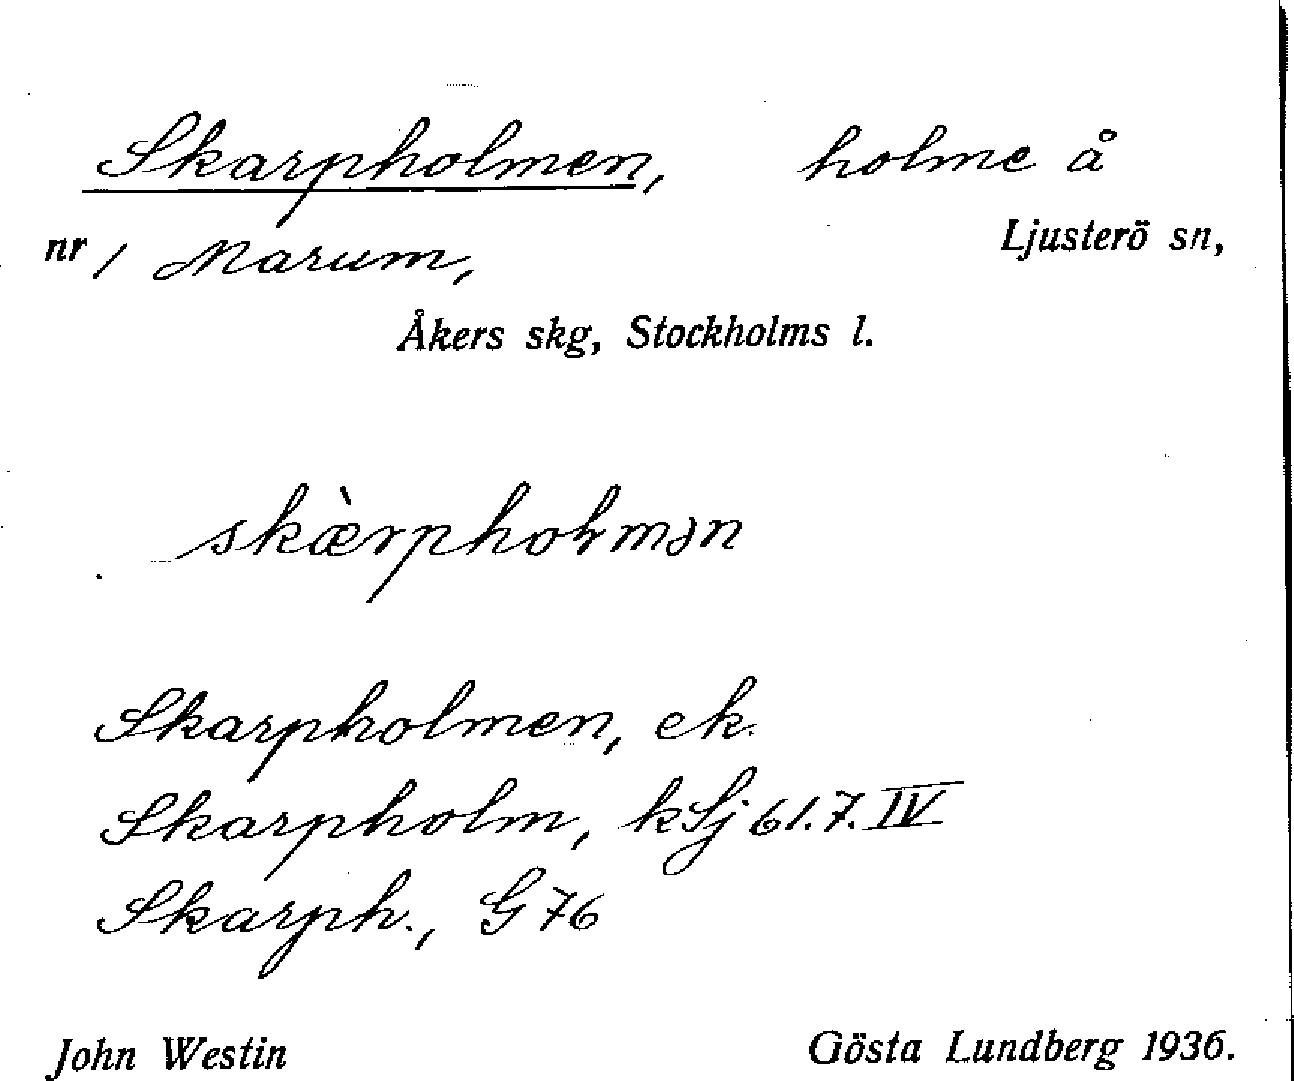 Skarpholmen, holme å
nr 1 Marum, Ljusterö sn,
Åkers skg, Stockholms l.
skæ̀rphoɫmən
Skarpholmen, ek.
Skarpholm, kSj 61.7.IV
Skarph., G 76
John Westin Gösta Lundberg 1936.